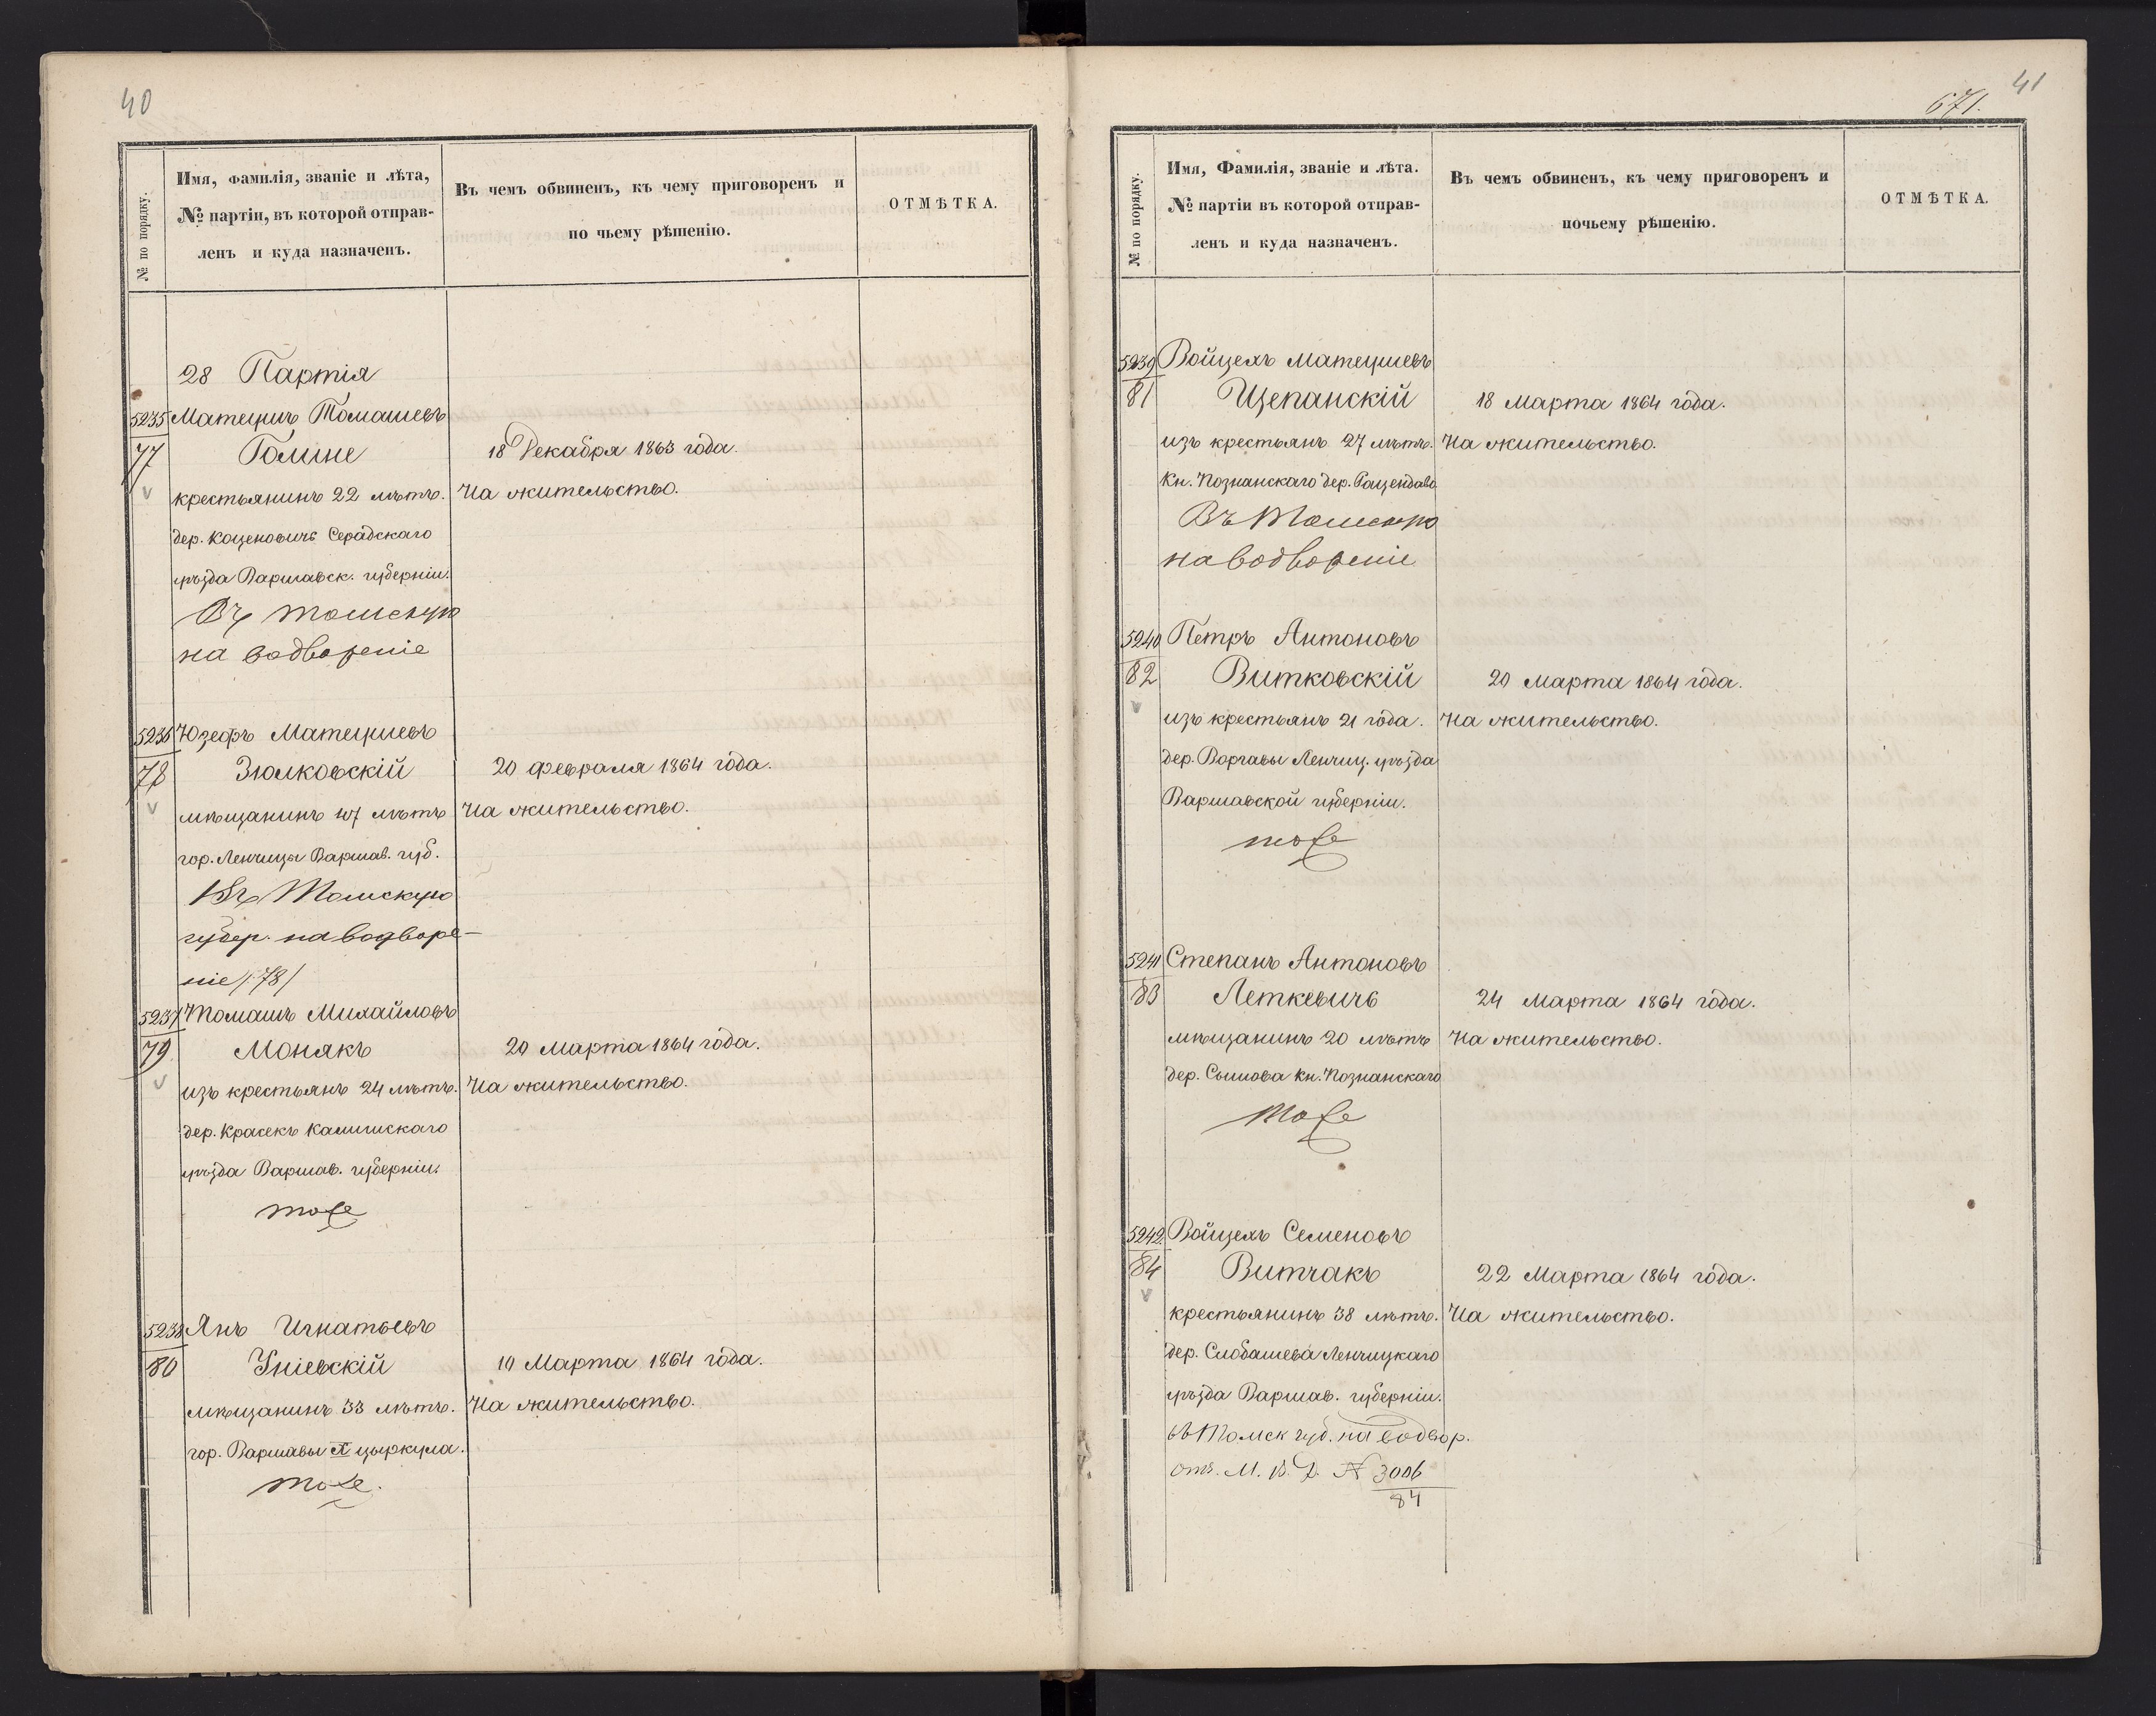 40
№ по порядку.
Имя, фамилія, званіе и лѣта,
№ партіи, въ которой отправ-
ленъ и куда назначенъ.
Въ чемъ обвиненъ, къ чему приговоренъ и
по чьему рѣшенію.
ОТМѢТКА.
28 Партія
5235 Матеушъ Томашевъ
77 Голине
18 Декабря 1863 года.
крестьянинъ 22 лѣтъ. На жительство.
дер. Коценовичъ Серадскаго
уѣзда Варшавск. губерніи.
Въ томскую
на водвореніе
5236 Юзефъ Матеушевъ
78 Зюлковскій
20 февраля 1864 года.
мѣщанинъ 47 лѣтъ На жительство.
гор. Ленчицы Варшав. губ.
Въ Томскую
губер. на водворе-
ніе /78/
5237 Томашъ Михайловъ
79 Монякъ
20 Марта 1864 года.
изъ крестьянъ 24 лѣтъ. На жительство.
дер. Красекъ Калишскаго
уѣзда Варшав. губерніи.
тоже
5238 Янъ Игнатьевъ
80 Уніевскій
10 Марта 1864 года.
мѣщанинъ 33 лѣтъ. На жительство.
гор. Варшавы цыркула.
тоже.
41
671.
№ по порядку.
Имя, Фамилія, званіе и лѣта.
№ партіи въ которой отправ-
ленъ и куда назначенъ.
Въ чемъ обвиненъ, къ чему приговоренъ и
почьему рѣшенію.
ОТМѢТКА.
5239 Войцехъ Матеушевъ
81 Щепанскій
18 Марта 1864 года.
изъ крестьянъ 27 лѣтъ. На жительство.
Кн. Познанскаго дер.
Въ Томскую
на водвореніе
5240 Петръ Антоновъ
82 Витковскій
20 Марта 1864 года.
изъ крестьянъ 21 года. На жительство.
дер. Воргавы Ленчиц. уѣзда
Варшавской губерніи.
тоже
5241 Степанъ Антоновъ
83 Леткевичъ
24 Марта 1864 года.
мѣщанинъ 20 лѣтъ На жительство.
дер. Кн. Познанскаго
Тоже
5242 Войцехъ Семеновъ
84 Витчакъ
22 Марта 1864 года.
крестьянинъ 38 лѣтъ. На жительство.
дер. Слобашева Ленчицкаго
уѣзда Варшав. губерніи.
въ Томск губ. на водвор.
отз. М. В. Д. № 3006
84